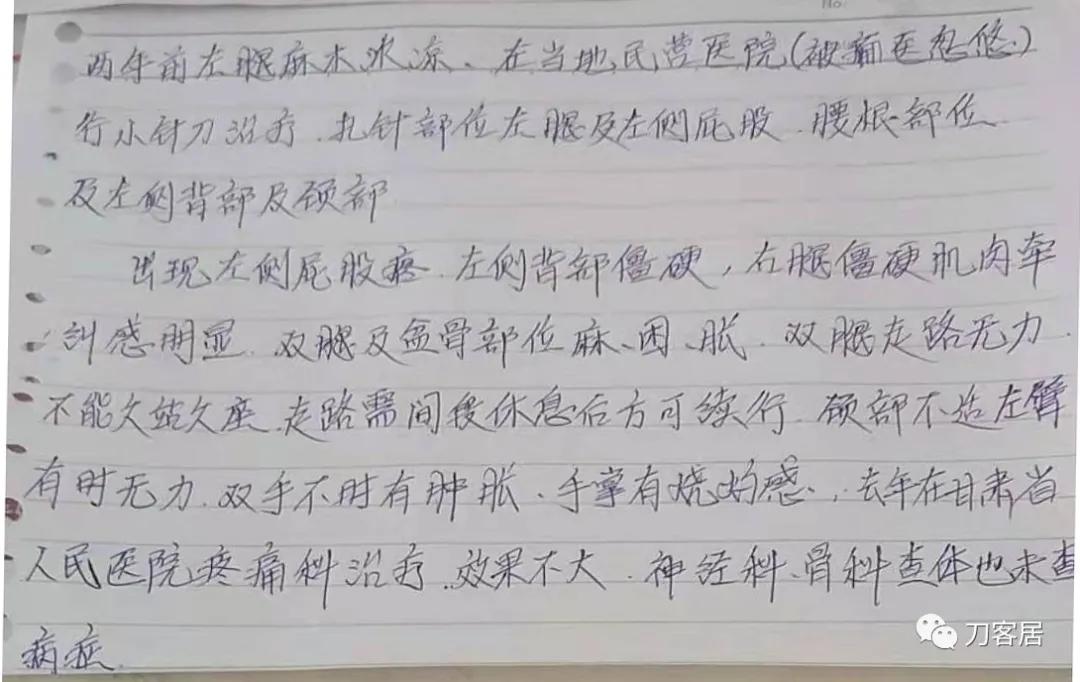 No.
两年前左腿麻木冰凉、在当地民营医院(被骗医忽悠)
行小针刀治疗.扎针部位左腿及左侧屁股.腰根部位
及左侧背部及颈部
出现左侧屁股疼.左侧背部僵硬,右腿僵硬肌肉牵
纠感明显.双腿及盆骨部位麻、困、胀.双腿走路无力.
不能久站久座.走路需间接休息后方可续行.颈部不适左臂
有时无力.双手不时有肿胀、手掌有烧灼感.,去年在甘肃省
人民医院疼痛科治疗.效果不大.神经科、骨科查体也未查
病症.
刀客居